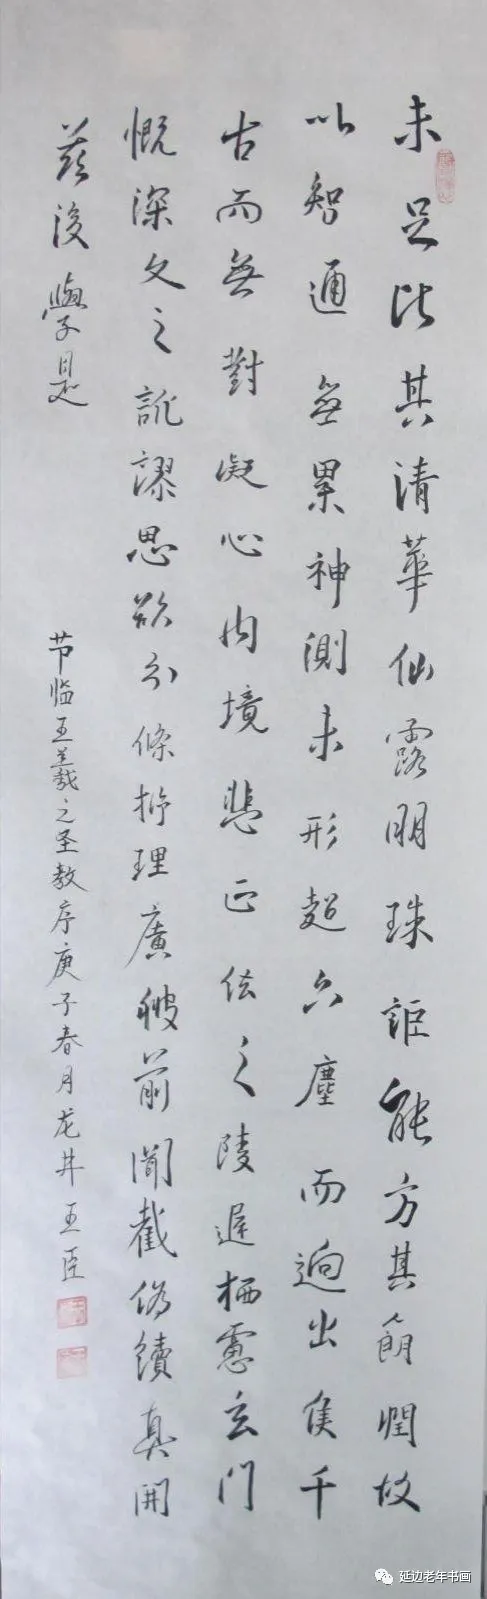 未足比其清華仙露明珠詎能方其朗潤故
以智通無累神測未形超六塵而迥出隻千
古而無對凝心內境悲正法之陵遲栖慮玄門
慨深文之訛謬思欲分條析理廣彼前聞截偽續真開
茲後學是
节临王羲之圣教序庚子春月龙井王臣
延边老年书画